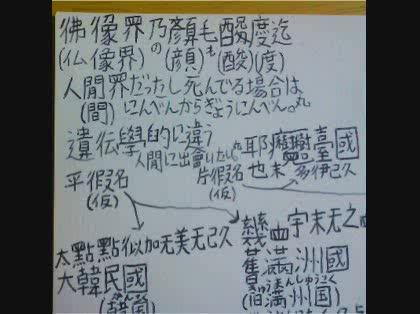 彿像界乃顏毛酸度迄
(仏像界)の(顔)も(酸)(度)
人間界だったし死んでる場合は
(間)にんべんからぎょうにんべん。丸
遺伝學的に違う
人間に出會いたし。丸
平假名
(仮)
片假名
(仮)
耶 臺國
也末多伊己久
太點點似加无美无己久
大韓民國
(韓国)
血宇末无之
舊滿洲國
(旧満州国)